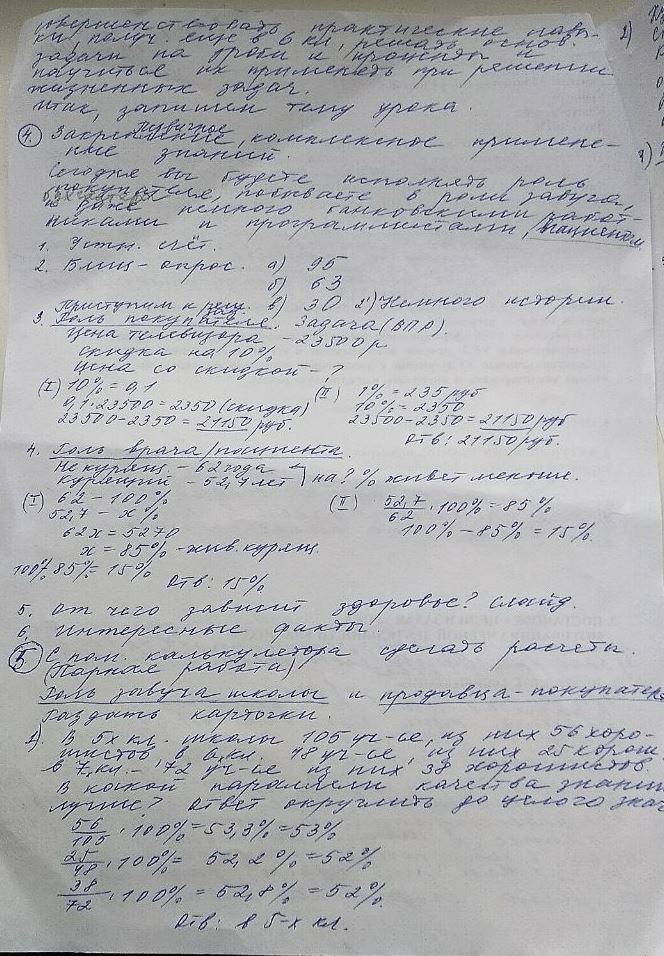 совершенствовать практические навы-
ки, получ. еще в 6 кл, решать основ.
задачи на дроби и проценты и
научиться их применять при решении
жизненных задач.
Итак, запишем тему урока.
4. Первичное
Закрепление, комплексное примене-
ние знаний.
Сегодня вы будете исполнять роль
покупателя, побываете в роли завуча,
и даже немного банковскими работ-
никами и программистами, пациентом
1. Устн. счёт.
2. Блиц-опрос. а) 95
б) 63
Приступим к реш. зад. в) 30 2) Немного истории.
3. Роль покупателя. Задача (ВПР).
Цена телевизора - 23500 р
скидка на 10%
Цена со скидкой - ?
(I) 10% = 0,1
0,1·23500 = 2350 (скидка)
23500-2350 = 21150 руб.
(II) 1% = 235 руб
10% = 2350
23500-2350 = 21150 руб
Отв: 21150 руб.
4. Роль врача/пациента.
Не курящ. - 62 года
Курящий - 52,7 лет на ? % живет меньше.
(I) 62 - 100%
52,7 - x%
62x = 5270
x = 85% - жив. курящ.
100%-85% = 15%
Отв: 15%
(II) 52,7/62 · 100% = 85%
100% - 85% = 15%.
5. От чего зависит здоровье? Слайд.
6. Интересные факты
5 С пом. калькулетора сделать расчеты.
(Парная работа)
Роль завуча школы и продавца-покупателя
Раздать карточки.
1. В 5х кл. школы 105 уч-ся, из них 56 хоро-
шистов, в 6 кл. 48 уч-ся, из них 25 хорош.
в 7 кл. - 72 уч-ся из них 38 хорошистов.
В какой параллели качества знаний
лучше? Ответ округлить до целого знач
56/105 · 100% = 53,3% = 53%
25/48 · 100% = 52,2% = 52%
38/72 · 100% = 52,8% = 52%.
Отв: в 5-х кл.